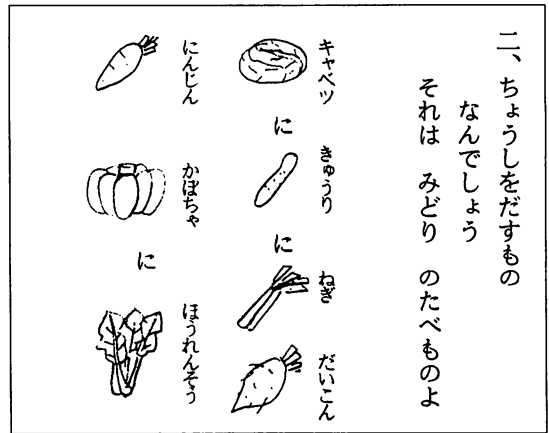 二、ちょうしをだすもの
なんでしょう
それは　みどり　のたべものよ
キャベツ　に　きゅうり　に　ねぎ　だいこん
にんじん　かぼちゃ　に　ほうれんそう